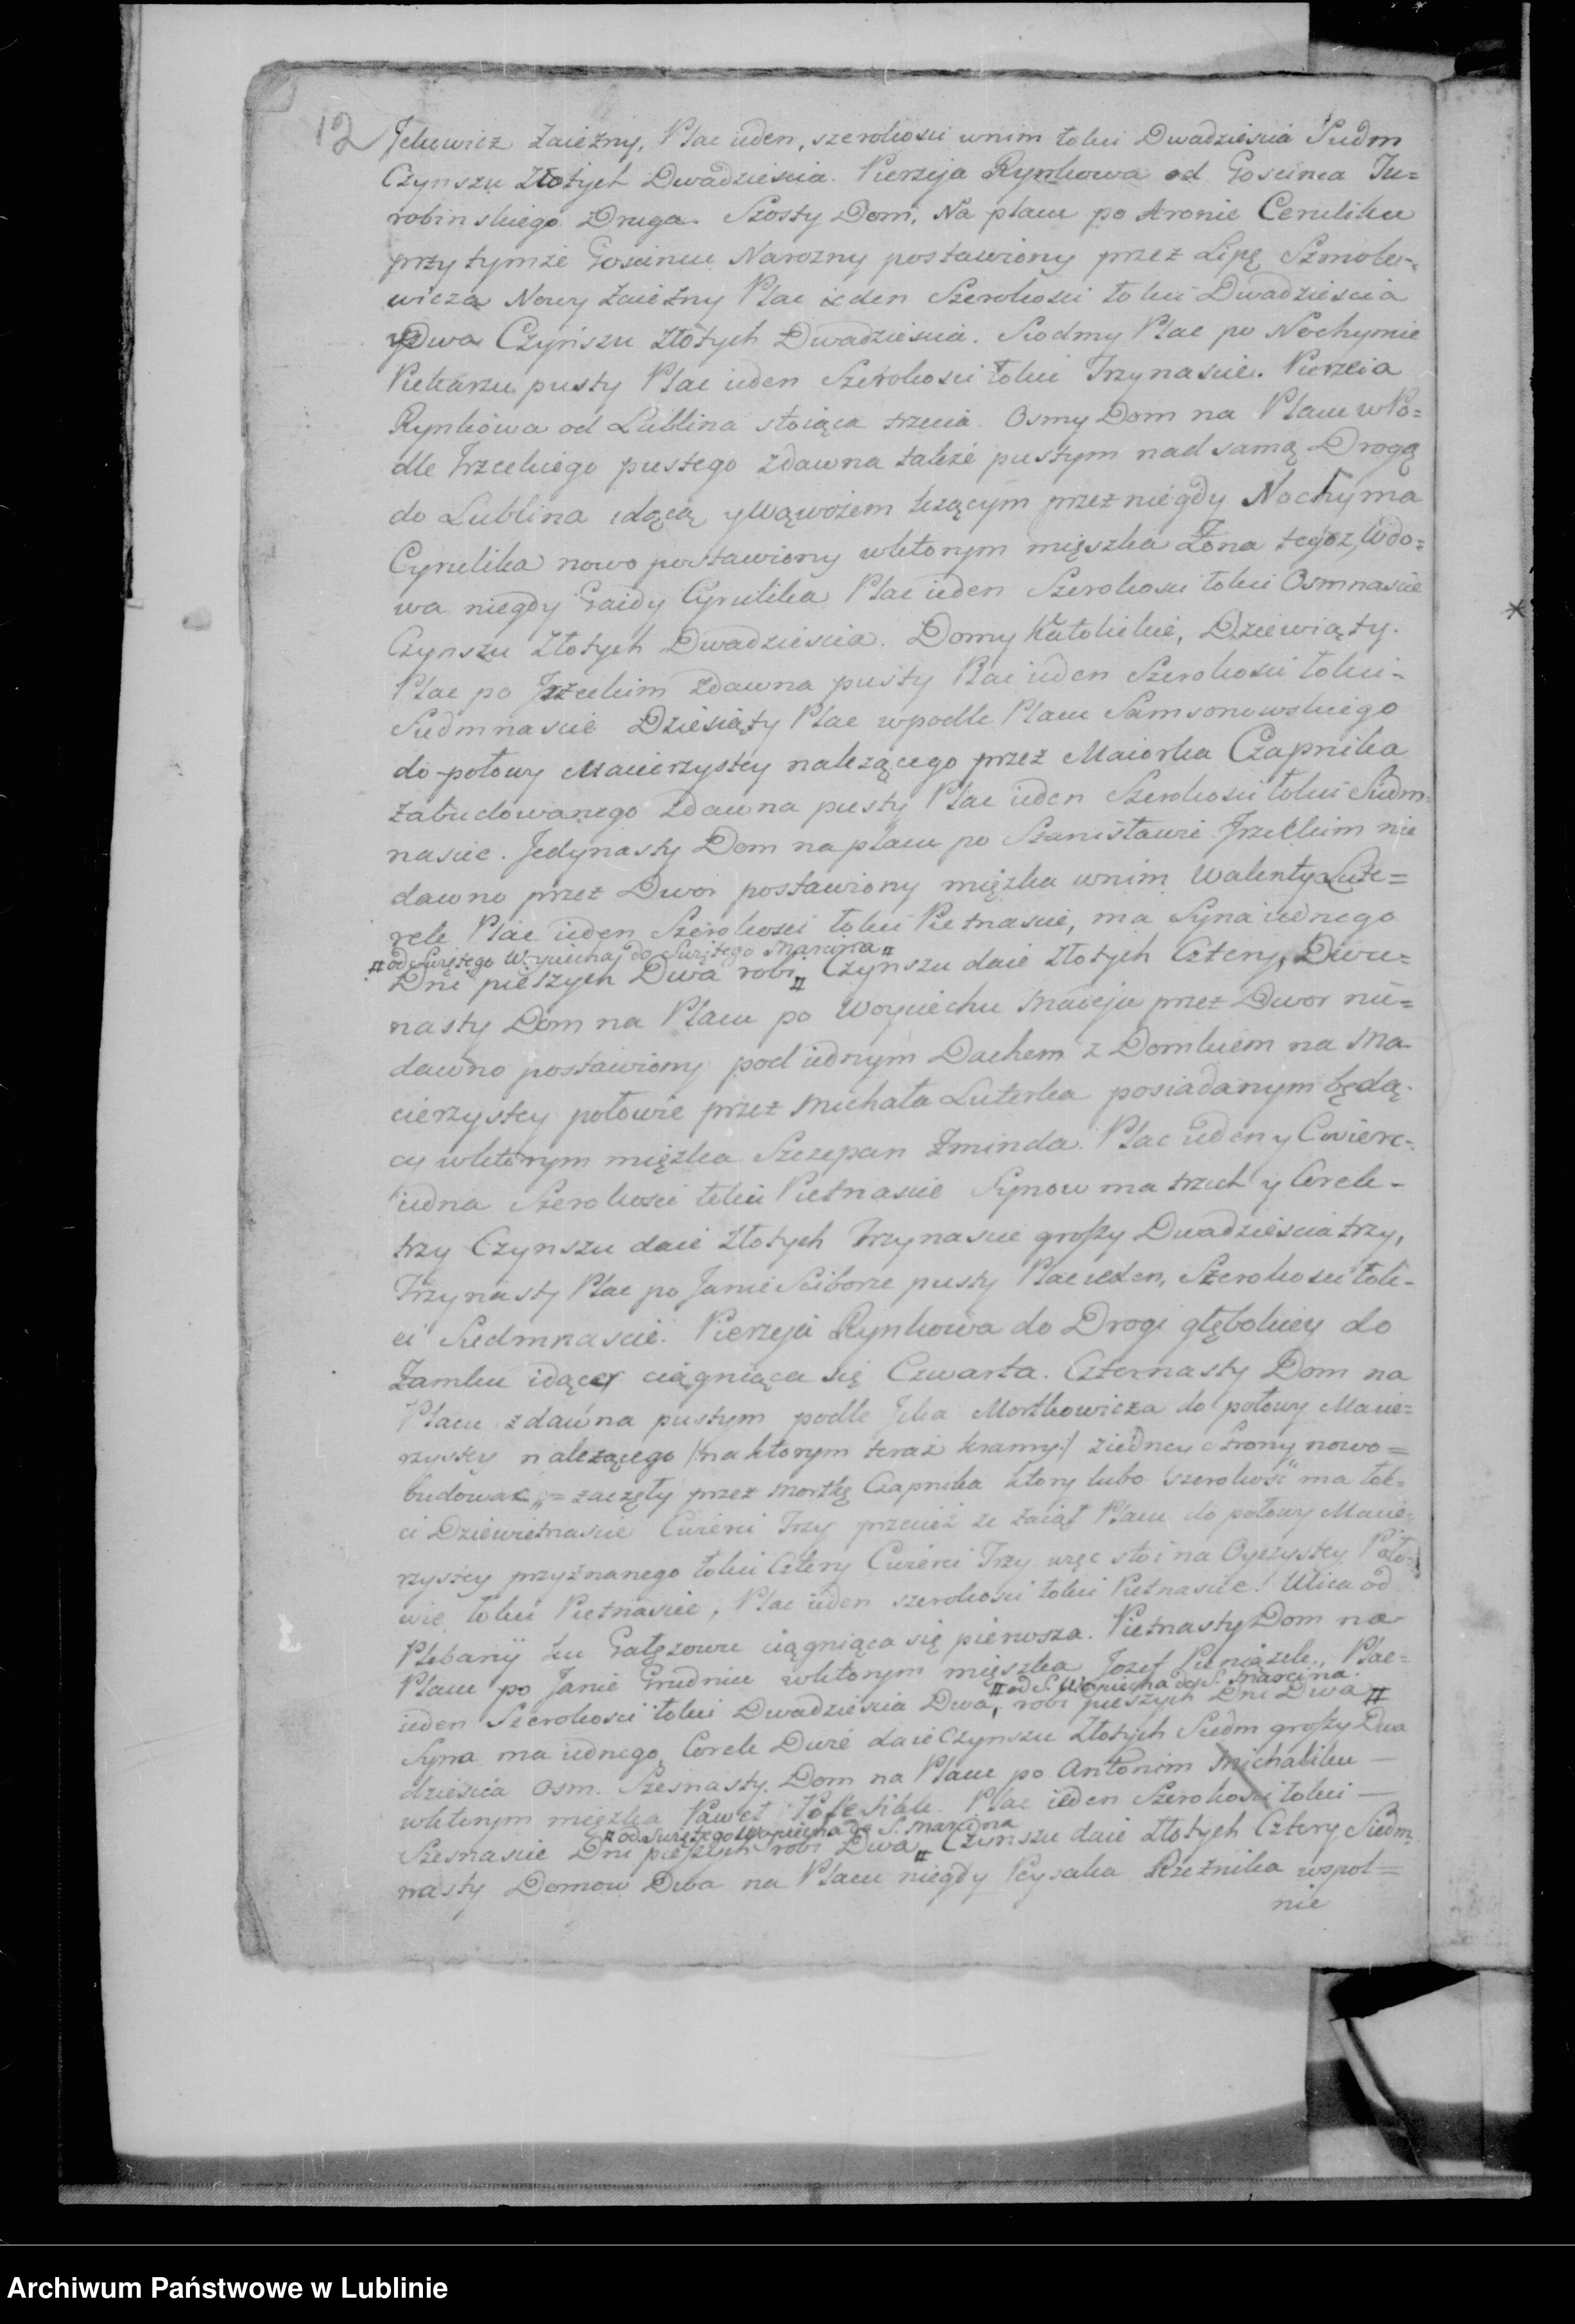 12
Jckowicz Zaiezny, Plac ieden, szerokosci wnim łokci Dwadziescia Siedm
Czynszu Złotych Dwadziescia. Pierzeja Rynkowa od Goscinca Tu=
robinskiego Druga. Szosty Dom, Na placu po Aronie Ceruliku
przy tymze Goscincu Narozny postawiony przez Lipę Szmolo-
wicza Nowy Zaiezny Plac ieden Szerokosci łokci Dwadziescia
y Dwa Czynszu Złotych Dwadziescia. Siodmy Plac po Nochymie
Piekarzu pusty Plac ieden Szerokosci łokci Trzynascie. Pierzeia
Rynkowa od Lublina stoiąca trzecia. Osmy Dom na Placu wPo=
dle Trzeckiego pustego zdawna takze pustym nad samą Drogą
do Lublina idącą y Wąwozem lezącym przez niegdy Nochyma
Cyrulika nowo postawiony wktorym mięszka Zona tegoz, Wdo=
wa niegdy Gaidy Cyrulika Plac ieden Szerokosci łokci Osmnascie
Czynszu Złotych Dwadziescia. Domy Katolickie, Dziewiąty.
Plac po Trzeckim zdawna pusty Plac ieden Szerokosci łokci-
Siedmnascie Dziesiąty Plac wpodle Placu Samsonowskiego
do połowy Macierzystey nalezącego przez Maiorka Czapnika
zabudowanego zdawna pusty Plac ieden Szerokosci łokci Siedm=
nascie. Jedynasty Dom na placu po Stanisławie Trzeckim nie
dawno przez Dwor postawiony mięszka wnim Walenty Lute=
rek Plac ieden Szerokosci łokci Pietnascie, ma Syna iednego
# od Swiętego Woyciecha do Swiętego Marcina #
Dni pieszych Dwa robi # Czynszu daie Złotych Cztery, Dwu=
nasty Dom na Placu po Woyciechu Macieju przez Dwor nie=
dawno postawiony pod iednym Dachem z Domkiem na Ma-
cierzystey połowie przez Michała Luterka posiadanym będą-
cy wktorym mięszka Szczepan Zminda. Plac ieden y Cwierc-
iedna Szerokosci łokci Pietnascie Synow ma trzech y Corek-
trzy Czynszu daie Złotych Trzynascie groszy Dwadziescia trzy,
Trzynasty Plac po Janie Sciborze pusty Plac ieden, Szerokosci łok-
ci Siedmnascie. Pierzeja Rynkowa do Drogi głębokiey do
Zamku idącey ciągniąca się Czwarta. Czternasty Dom na
Placu zdawna pustym podle Jcka Mortkowicza do połowy Macie=
rzystey nalezącego /:na ktorym teraz kramy:/ ziedney strony nowo=
budowac = zaczęty przez Mortkę Czapnika ktory lubo szerokosc ma łok-
ci Dziewietnascie Cwierci Trzy przeciez ze zaiął Placu do połowy Macie=
rzystey przyznanego łokci Cztery Cwierci Trzy więc stoi na Oyczystey Poło-
wie łokci Pietnascie, Plac ieden szerokosci łokci Pietnascie. Ulica od
Plebanij ku Gałęzowu ciągniąca się pierwsza. Pietnasty Dom na
Placu po Janie Grudniu wktorym mięszka Jozef Pieniązek, Plac=
# od S. Woyciecha do S. Marcina.
ieden Szerokosci łokci Dwadziescia Dwa, robi pieszych Dni Dwa #
Syna ma iednego, Corek Dwie daie Czynszu Złotych Siedm groszy Dwa
dziescia Osm. Szesnasty Dom na Placu po Antonim Michaliku —
wktorym mięszka Paweł Plac ieden Szerokosci łokci —
# od Swiętego Woyciecha do S. Marcina
Szesnascie Dni pieszych robi Dwa # Czynszu daie Złotych Cztery Siedm
nasty Domow Dwa na Placu niegdy Peysaka Rzeznika wspol=
nie
Archiwum Państwowe w Lublinie